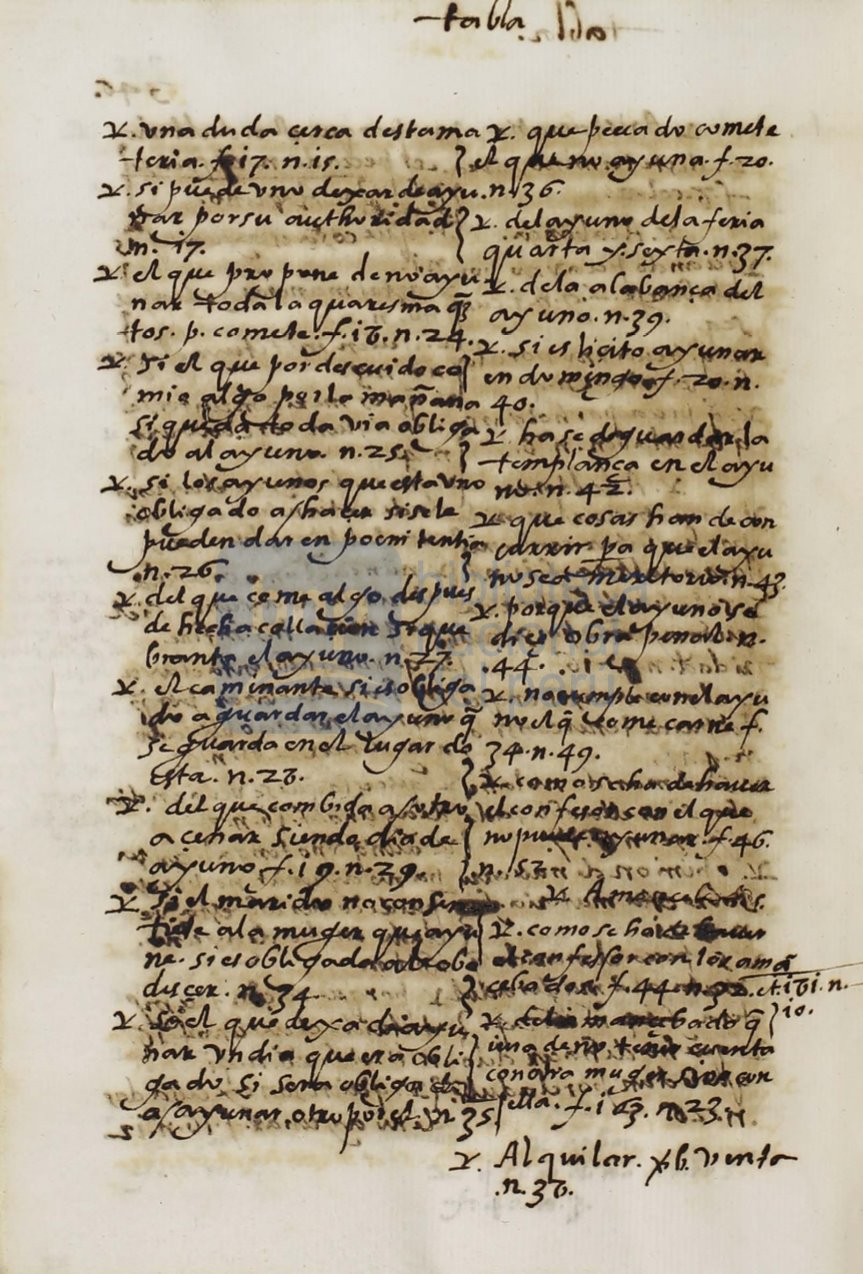 tabla
℣. una duda cerca desta ma
teria. f. 17. n. 15.
℣. si puede uno dexar de ayu
nar por su authoridad
n. 17.
℣. el que propone de no ayu
nar toda la quaresma q̃
tos. p. comete. f. 18. n. 24.
℣. Si el que por descuido co
mio algo por la mañana
si queda toda via obliga
do al ayuno. n. 25.
℣. si los ayunos que esta uno
obligado a hacer si se le
pueden dar en poenitentia
n. 26.
℣. del que come algo despues
de hecha collation si que
branta el ayuno. n. 27.
℣. el caminante si es obliga
do a guardar el ayuno q̃
se guarda en el lugar do
esta. n. 28.
℣. del que combida a otro
a cenar siendo dia de
ayuno f. 19. n. 29.
℣. Si el marido no consien
tide a la muger que ayu
ne. si es obligada a obe
descer. n. 34
℣. Si el que dexa de ayu
nar un dia que era obli
gado si sera obligado
a ayunar otro por el. n. 35
℣. que peccado comete
el que no ayuna. f. 20.
n. 36.
℣. del ayuno de la feria
quarta y sexta. n. 37.
℣. de la alabança del
ayuno. n. 39.
℣. si es licito ayunar
en domingo f. 20. n.
40.
℣ ha se de guardar la
templança en el ayu
no. n. 42.
℣ que cosas han de con
currir pa que el ayu
no sea meritorio. n. 43.
℣. porque el ayuno se
dice obra penal. n.
44.
℣. no cumple con el ayu
no el q̃ come carne f.
34. n. 49.
℣. como se ha de haver
el confesor con el que
no puede ayunar. f. 46.
n. 52.
℣ Amancebados.
℣. como se ha de haver
el confessor con los amã
cebados. f. 44. et 181. n.
10.
℣ mancebado q̃
una de no tener cuenta
con otra muger sino con
ella. f. 163. n. 23.
℣. Alquilar. xb. venta
n. 38.